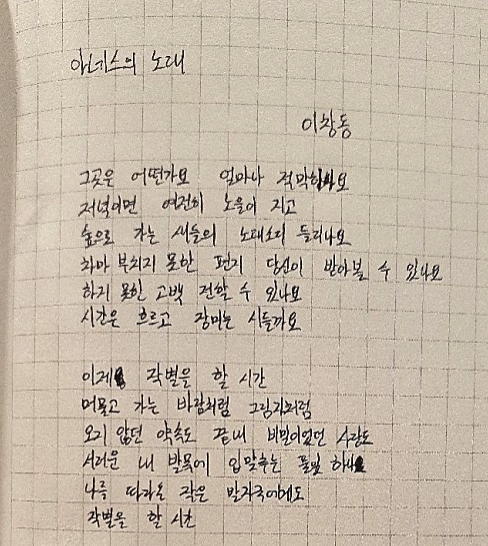 아네스의 노래
이창동
그곳은 어떤가요 얼마나 적막하나요
저녁이면 여전히 노을이 지고
숲으로 가는 새들의 노래소리 들리나요
차마 부치지 못한 편지 당신이 받아볼 수 있나요
하지 못한 고백 전할 수 있나요
시간은 흐르고 장미는 시들까요
이제 작별을 할 시간
머물고 가는 바람처럼 그림자처럼
오지 않던 약속도 끝내 비밀이었던 사랑도
서러운 내 발목에 입맞추는 풀잎 하나
나를 따라온 작은 발자국에게도
작별을 할 시간